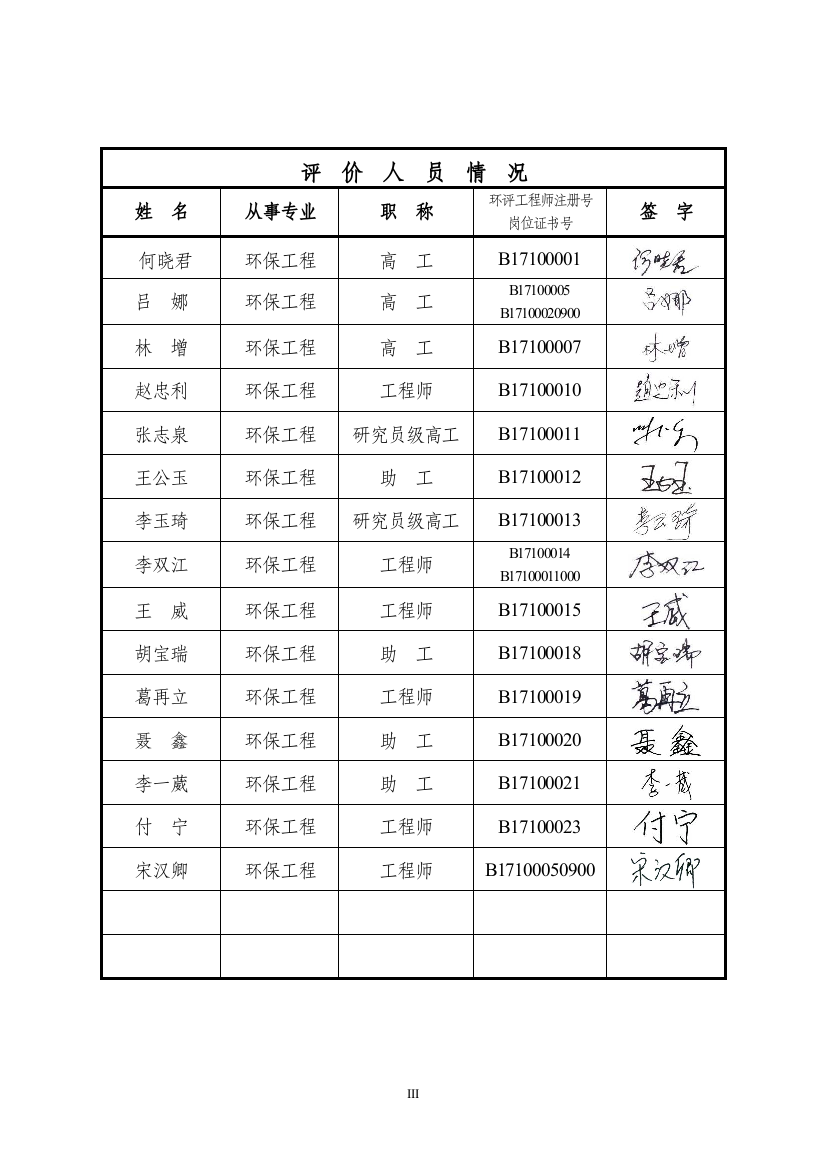 评 价 人 员 情 况
姓 名 从事专业 职 称 环评工程师注册号 岗位证书号 签 字
何晓君 环保工程 高 工 B17100001 何晓君
吕 娜 环保工程 高 工 B17100005 B17100020900 吕娜
林 增 环保工程 高 工 B17100007 林增
赵忠利 环保工程 工程师 B17100010 赵忠利
张志泉 环保工程 研究员级高工 B17100011
王公玉 环保工程 助 工 B17100012 王公玉
李玉琦 环保工程 研究员级高工 B17100013 李玉琦
李双江 环保工程 工程师 B17100014 B17100011000 李双江
王 威 环保工程 工程师 B17100015 王威
胡宝瑞 环保工程 助 工 B17100018 胡宝瑞
葛再立 环保工程 工程师 B17100019 葛再立
聂 鑫 环保工程 助 工 B17100020 聂鑫
李一葳 环保工程 助 工 B17100021 李一葳
付 宁 环保工程 工程师 B17100023 付宁
宋汉卿 环保工程 工程师 B17100050900 宋汉卿
III